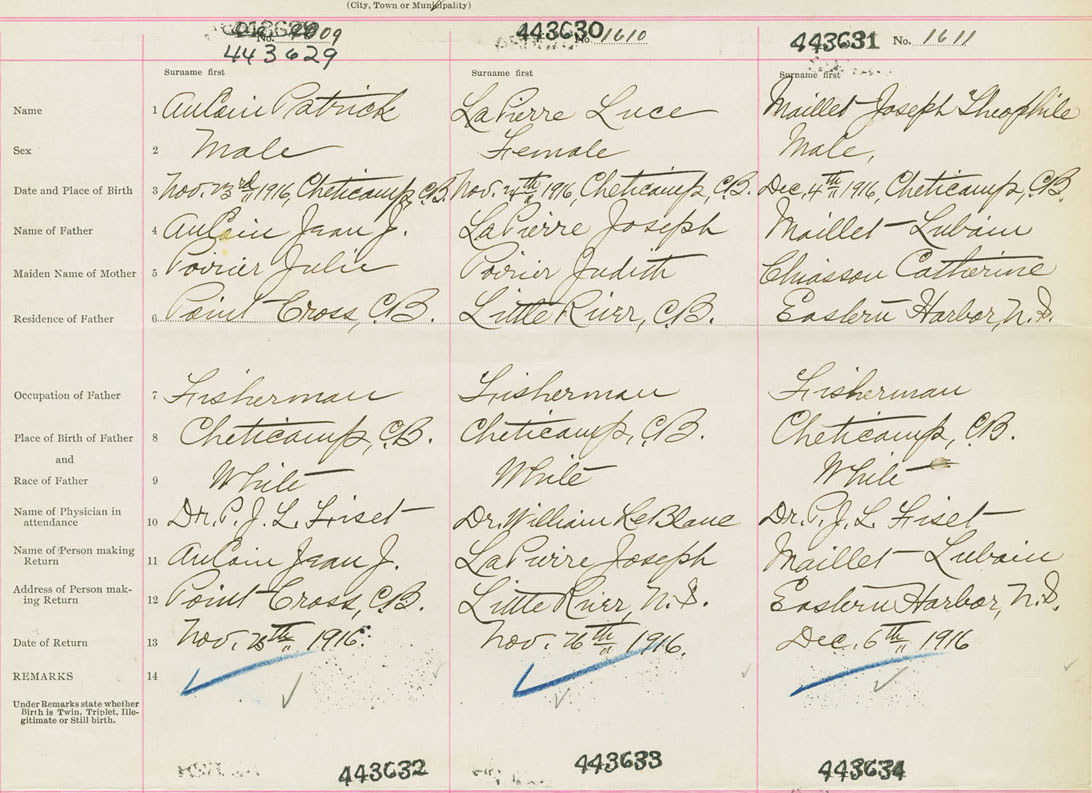 (City, Town or Municipality)
No. 1609 443630 No. 1610 443631 No. 1611
443629
Surname first Surname first Surname first
Name 1 AuCoin Patrick LaPierre Luce Maillet Joseph Theophile
Sex 2 Male Female Male,
Date and Place of Birth 3 Nov. 23rd 1916, Cheticamp, C.B. Nov. 24th 1916, Cheticamp, C.B. Dec. 4th 1916, Cheticamp, C.B.
Name of Father 4 AuCoin Jean J. LaPierre Joseph Maillet Lubain
Maiden Name of Mother 5 Poirier Julie Poirier Judith Chiasson Catherine
Residence of Father 6 Point Cross, C.B. Little River, C.B. Eastern Harbor, N.S.
Occupation of Father 7 Fisherman Fisherman Fisherman
Place of Birth of Father 8 Cheticamp, C.B. Cheticamp, C.B. Cheticamp, C.B.
and
Race of Father 9 White White White
Name of Physician in attendance 10 Dr. P. J. L. Fiset Dr. William LeBlanc Dr. P. J. L. Fiset
Name of Person making Return 11 AuCoin Jean J. LaPierre Joseph Maillet Lubain
Address of Person making Return 12 Point Cross, C.B. Little River, N.S. Eastern Harbor, N.S.
Date of Return 13 Nov. 25th 1916. Nov. 26th 1916. Dec. 6th 1916
REMARKS 14
Under Remarks state whether
Birth is Twin, Triplet, Ille-
gitimate or Still birth.
443632 443633 443634